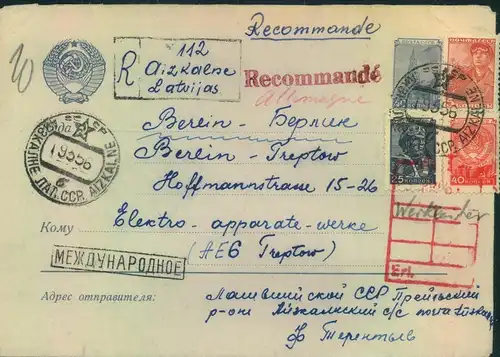 Recommande
R 112
Aizkalne
Latvijas
Recommandé
Allemagne
Куда
Berlin - Берлик
Berlin - Treptow
Hoffmannstrasse 15-26
Кому Elektro-apparate-werke
(AEG Treptow)
МЕЖДУНАРОДНОЕ
Адрес отправителя:
Латвийской ССР Прейльский
р-он Айзкалнский с/с почта
Терентьев
ЛАТ. ССР. AIZKALNE
ПОЧТА СССР
25
40
Erl.